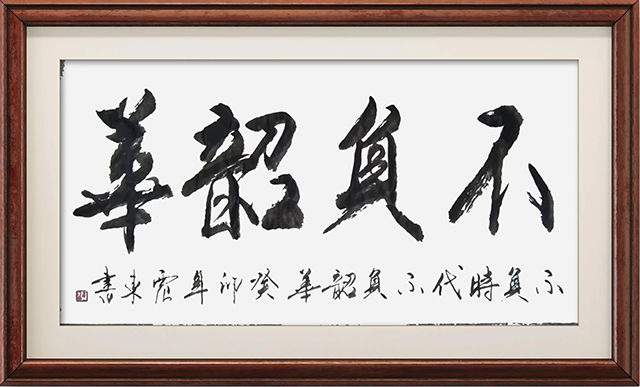 不負韶華
不負時代不負韶華癸卯年宏東書